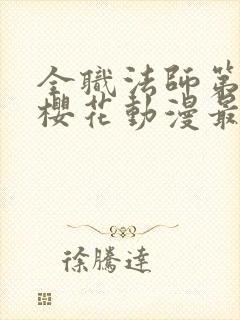 全職法師第
櫻花動漫最
徐騰達